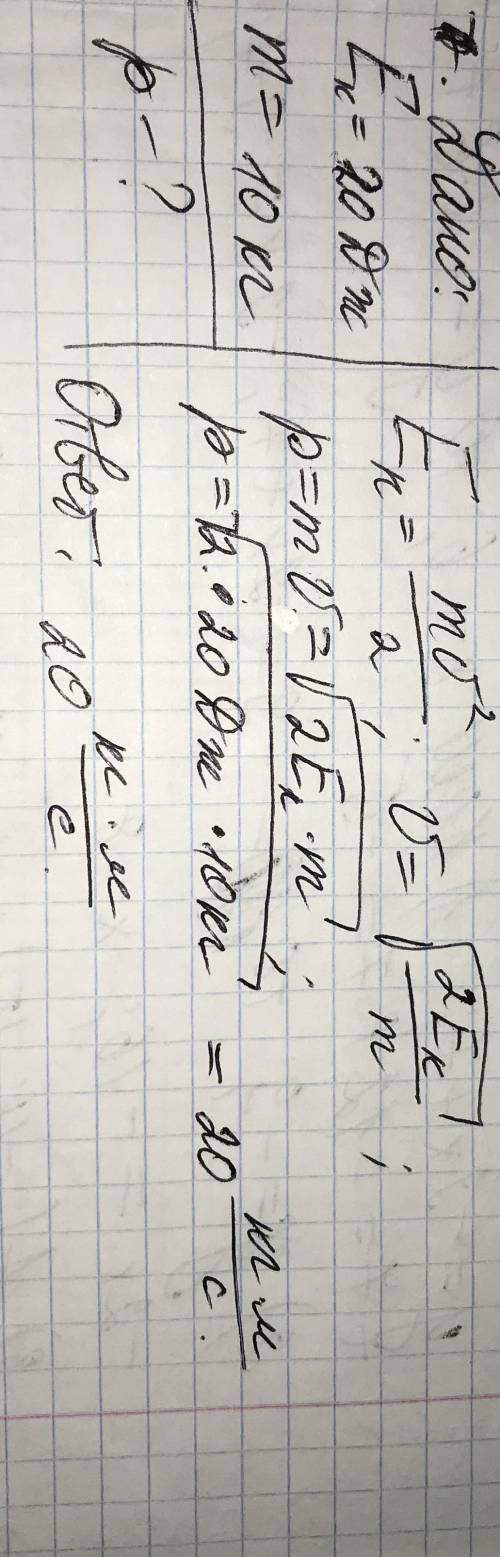 Дано:
Eк = 20 Дж
m = 10 кг
p - ?
Eк = mv²/2; v = √(2Eк/m);
p = mv = √(2Eк·m);
p = √(2·20 Дж·10 кг) = 20 кг·м/с.
Ответ: 20 кг·м/с.